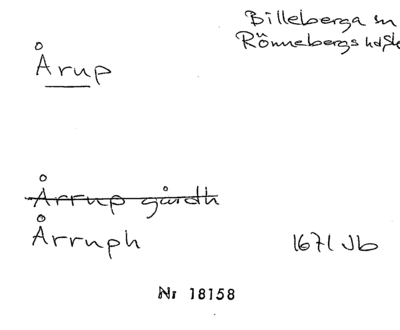 Billeberga sn
Årup
Rönnebergs hd, Sk
Årrup gårdh
Årruph
1671 Jb
Nr 18158